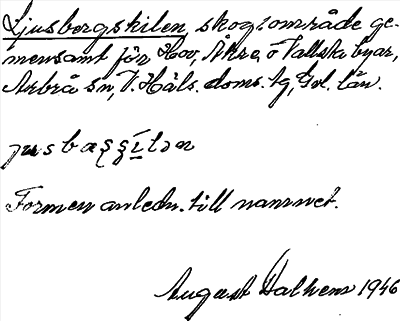 Ljusbergskilen, skogsområde ge-
mensamt för Hov, Åkre, o Vallsta byar,
Arbrå sn, V. Häls. doms. tg, Gvl. län.
Formen anledn. till namnet.
August Hallner 1946